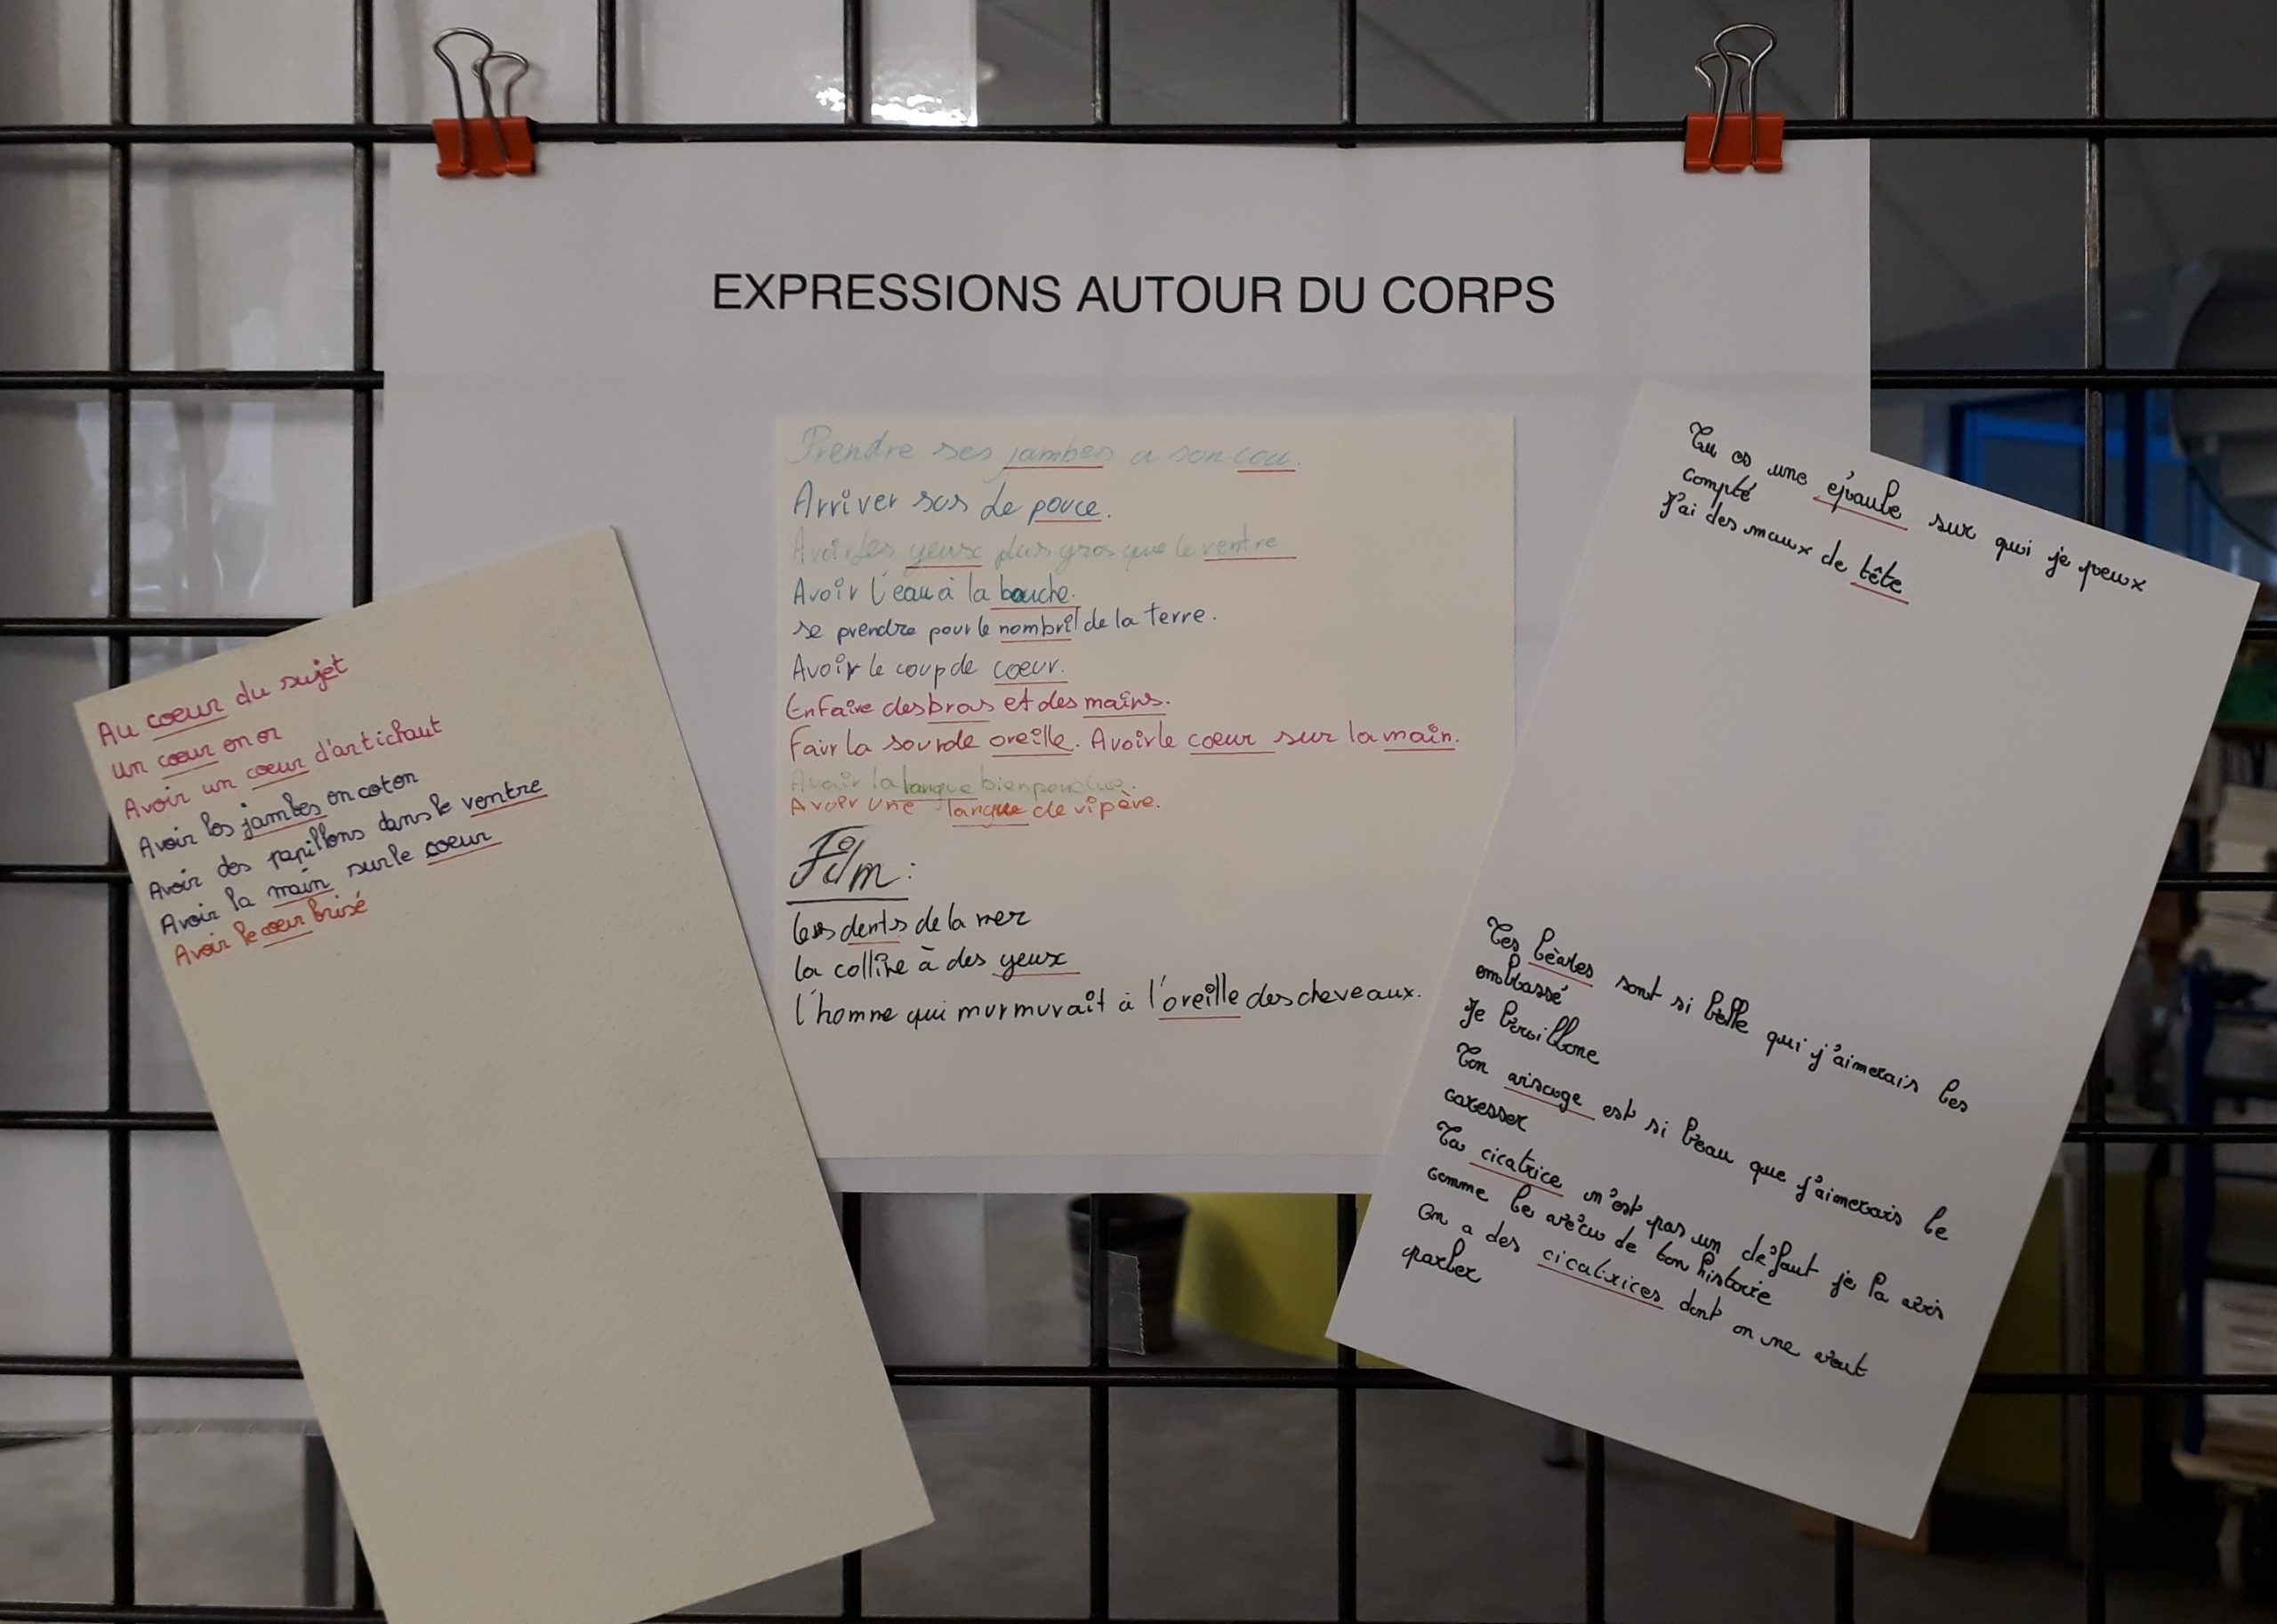 EXPRESSIONS AUTOUR DU CORPS
Au coeur du sujet
un coeur en or
Avoir un coeur d'artichaut
Avoir les jambes en coton
Avoir des papillons dans le ventre
Avoir la main sur le coeur
Avoir le coeur brisé
Prendre ses jambes a son cou.
Arriver sus le pouce.
Avoir les yeux plus gros que le ventre
Avoir l'eau à la bouche.
se prendre pour le nombril de la terre.
Avoir le coup de coeur.
En faire des bras et des mains.
Fair la sourde oreille. Avoir le coeur sur la main.
Avoir la langue bien pendue.
Avoir une langue de vipère.
Film:
les dents de la mer
la colline à des yeux
l'homme qui murmurait à l'oreille des cheveaux.
Tu es une épaule sur qui je peux
compté
J'ai des maux de tête
Tes lèvres sont si belle qui j'aimerais les
embrassé
Je
Ton visage est si beau que j'aimerais le
caresser
Ta cicatrice n'est pas un défaut je la vois
comme le vécu de ton histoire
On a des cicatrices dont on ne veut
parler